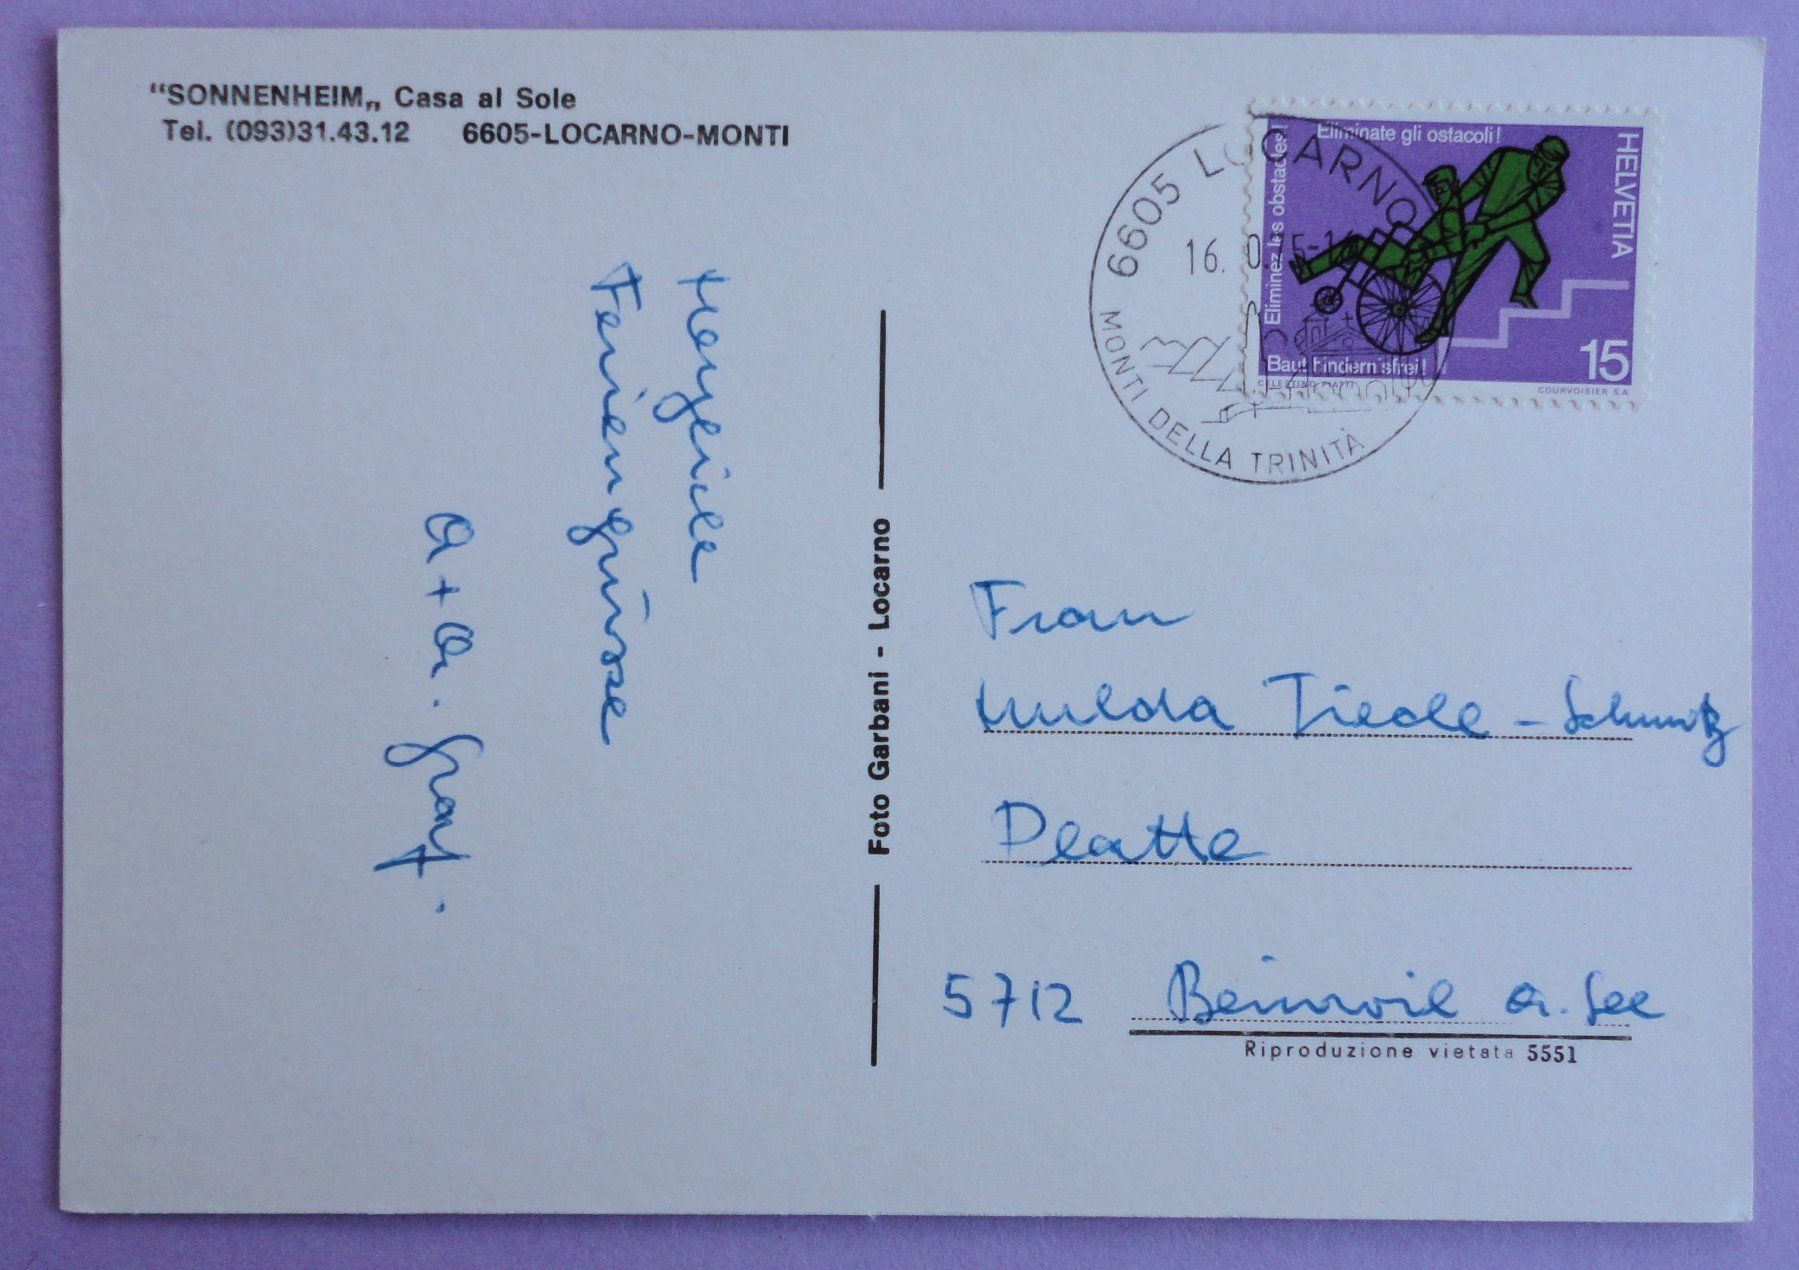 “SONNENHEIM„ Casa al Sole
Tel. (093)31.43.12 6605-LOCARNO-MONTI
Herzliche
Feriengrüsse
A + A. Graf.
Foto Garbani - Locarno
6605 LOCARNO
16.
MONTI DELLA TRINITÀ
Eliminate gli ostacoli!
Eliminez les obstacles!
Baut hindernisfrei!
HELVETIA
15
CELESTINO PIATTI
COURVOISIER S.A.
Frau
Hulda Tiede - Schmutz
Platte
5712 Beinwil a. See
Riproduzione vietata 5551